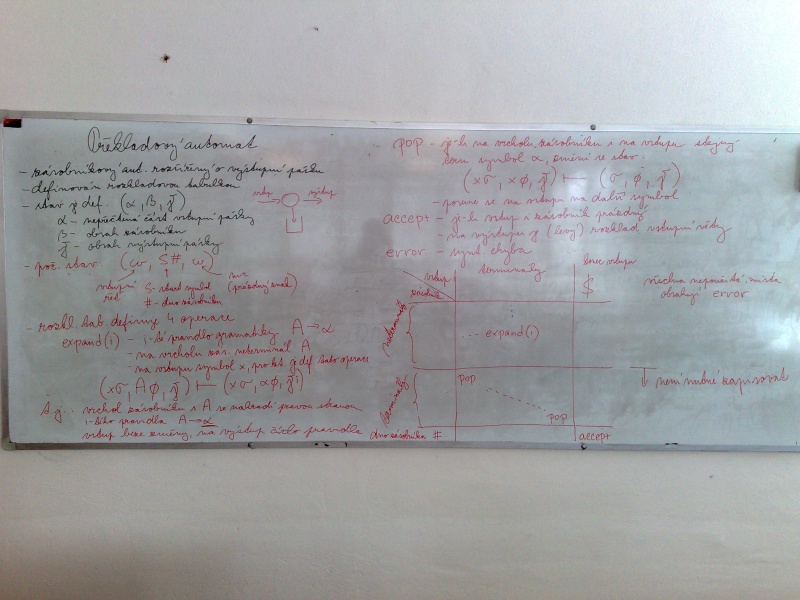 Překladový automat
- zásobníkový aut. rozšířený o výstupní pásku
- definován rozkladovou tabulkou
- stav je def. (α, β, ȳ)
α - nepřečtená část vstupní pásky
β - obsah zásobníku
ȳ - obsah výstupní pásky
vstup výstup
- poč. stav (ω, S#, ω)
vstupní řet. S - start symbol (prázdný znak)
# - dno zásobníku
- rozkl. tab. definuje 4 operace
expand(i) - i-té pravidlo gramatiky A → α
- na vrcholu zás. neterminál A
- na vstupu symbol x, pro kt. je def. tato operace
(xσ, Aϕ, ȳ) ⊢ (xσ, αϕ, ȳi)
t.j.: vrchol zásobníku s A se nahradí pravou stranou
i-tého pravidla A → α
vstup beze změny, na výstup číslo pravidla
pop - je-li na vrcholu zásobníku i na vstupu stejný
symbol x, změní se stav:
(xσ, xϕ, ȳ) ⊢ (σ, ϕ, ȳ)
- posune se na vstupu na další symbol
accept - je-li vstup i zásobník prázdný
- na výstupu je (levý) rozklad vstupní věty
error - synt. chyba
vstup terminály konec vstupu
zásobník $
všechna nepopsaná místa
obsahují error
neterminály
... expand(i)
terminály
pop
pop
↓ není nutné zapisovat
dno zásobníku # accept